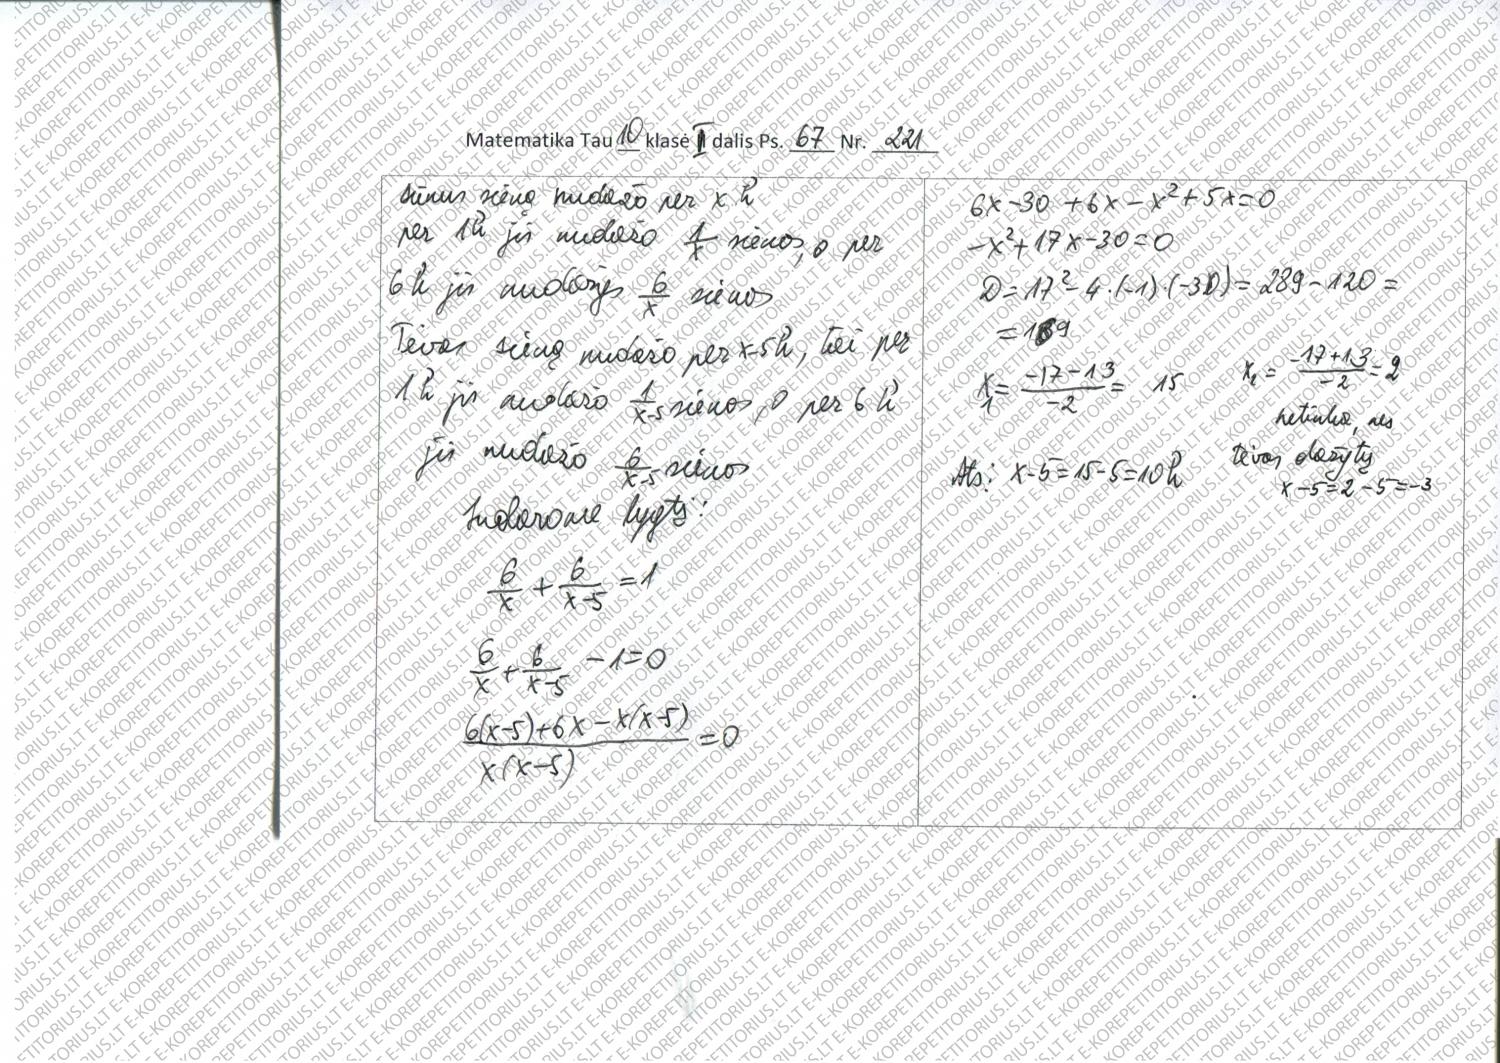 Matematika Tau 10 klasė II dalis Ps. 67 Nr. 221
Sūnus sieną nudažo per x h
per 1h jis nudažo 1/x sienos, o per
6h jis nudažys 6/x sienos
Tėvas sieną nudažo per x-5h, tai per
1h jis nudažo 1/(x-5) sienos, o per 6h
jis nudažo 6/(x-5) sienos
Sudarome lygtį:
6/x + 6/(x-5) = 1
6/x + 6/(x-5) - 1 = 0
(6(x-5)+6x-x(x-5))/(x(x-5)) = 0
6x-30+6x-x²+5x=0
-x²+17x-30=0
D=17²-4·(-1)·(-30)=289-120=
=169
x₁=(-17-13)/(-2)=15
x₂=(-17+13)/(-2)=2
netinka, nes
tėvas dažytų
x-5=2-5=-3
Ats: x-5=15-5=10h
E-KOREPETITORIUS.LT